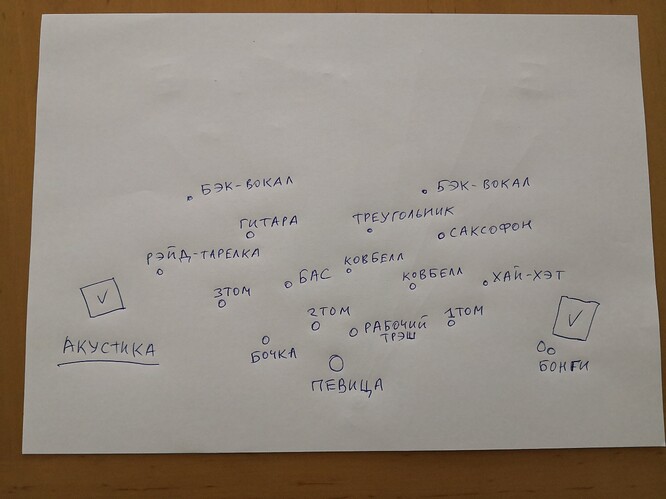 БЭК-ВОКАЛ
БЭК-ВОКАЛ
ГИТАРА
ТРЕУГОЛЬНИК
САКСОФОН
РЭЙД-ТАРЕЛКА
КОВБЕЛЛ
БАС
КОВБЕЛЛ
ХАЙ-ХЭТ
3ТОМ
V
2ТОМ
РАБОЧИЙ
ТРЭШ
1ТОМ
V
АКУСТИКА
БОЧКА
БОНГИ
ПЕВИЦА